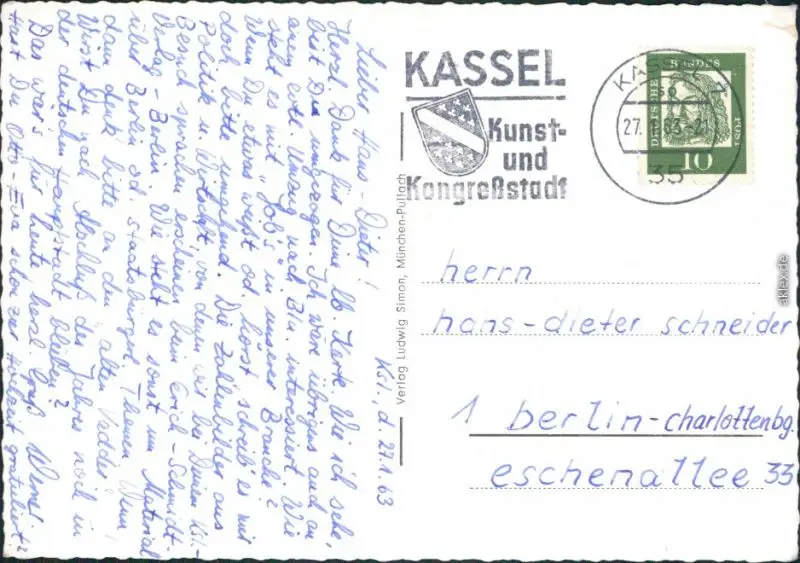 Ksl., d. 27.1.63
Lieber Hans-Dieter!
Herzl. Dank für Deine lb. Karte. Wie ich sehe,
bist Du umgezogen. Ich wäre übrigens auch an
einem evtl. Umzug nach Bln. interessiert. Wie
sieht es mit "Job's" in unserer Branche?
Wenn Du etwas weißt od. hörst schreib es mir
doch bitte umgehend. Die Zahlenbilder aus
Politik u. Wirtschaft, von denen wir bei Deinem Ksl.-
Besuch sprachen, erscheinen beim Erich-Schmidt-
Verlag-Berlin. Wie sieht es sonst um Material
über Berlin od. staatsbürgerl. Themen. Wenn
dann denk bitte an den alten Vadder!
Wirst Du nach Abschluß des Jahres noch in
der deutschen Hauptstadt bleiben?
Das wär's für heute, herzl. Gruß Werner
Hast Du Otto + Eva schon zur Hochzeit gratuliert?
Verlag Ludwig Simon, München-Pullach
KASSEL
Kunst-
und
Kongreßstadt
KASSEL 2
27. 1. 63
35
DEUTSCHE BUNDESPOST
10
herrn
hans-dieter schneider
1 berlin-charlottenbg.
eschenallee 33
aklex.de